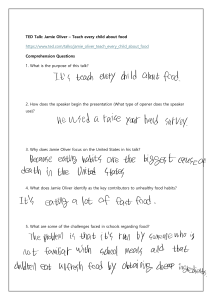 TED Talk: Jamie Oliver – Teach every child about food
https://www.ted.com/talks/jamie_oliver_teach_every_child_about_food
Comprehension Questions
1. What is the purpose of this talk?
It's teach every child about food.
2. How does the speaker begin the presentation (What type of opener does the speaker use)?
He used a raise your hand survey
3. Why does Jamie Oliver focus on the United States in his talk?
Because eating habits are the biggest cause of
death in the United States
4. What does Jamie Oliver identify as the key contributors to unhealthy food habits?
It's eating a lot of fast food.
5. What are some of the challenges faced in schools regarding food?
The problem is that it's run by someone who is
not familiar with school meals and that
children eat unfresh food by obtaining cheap ingredients